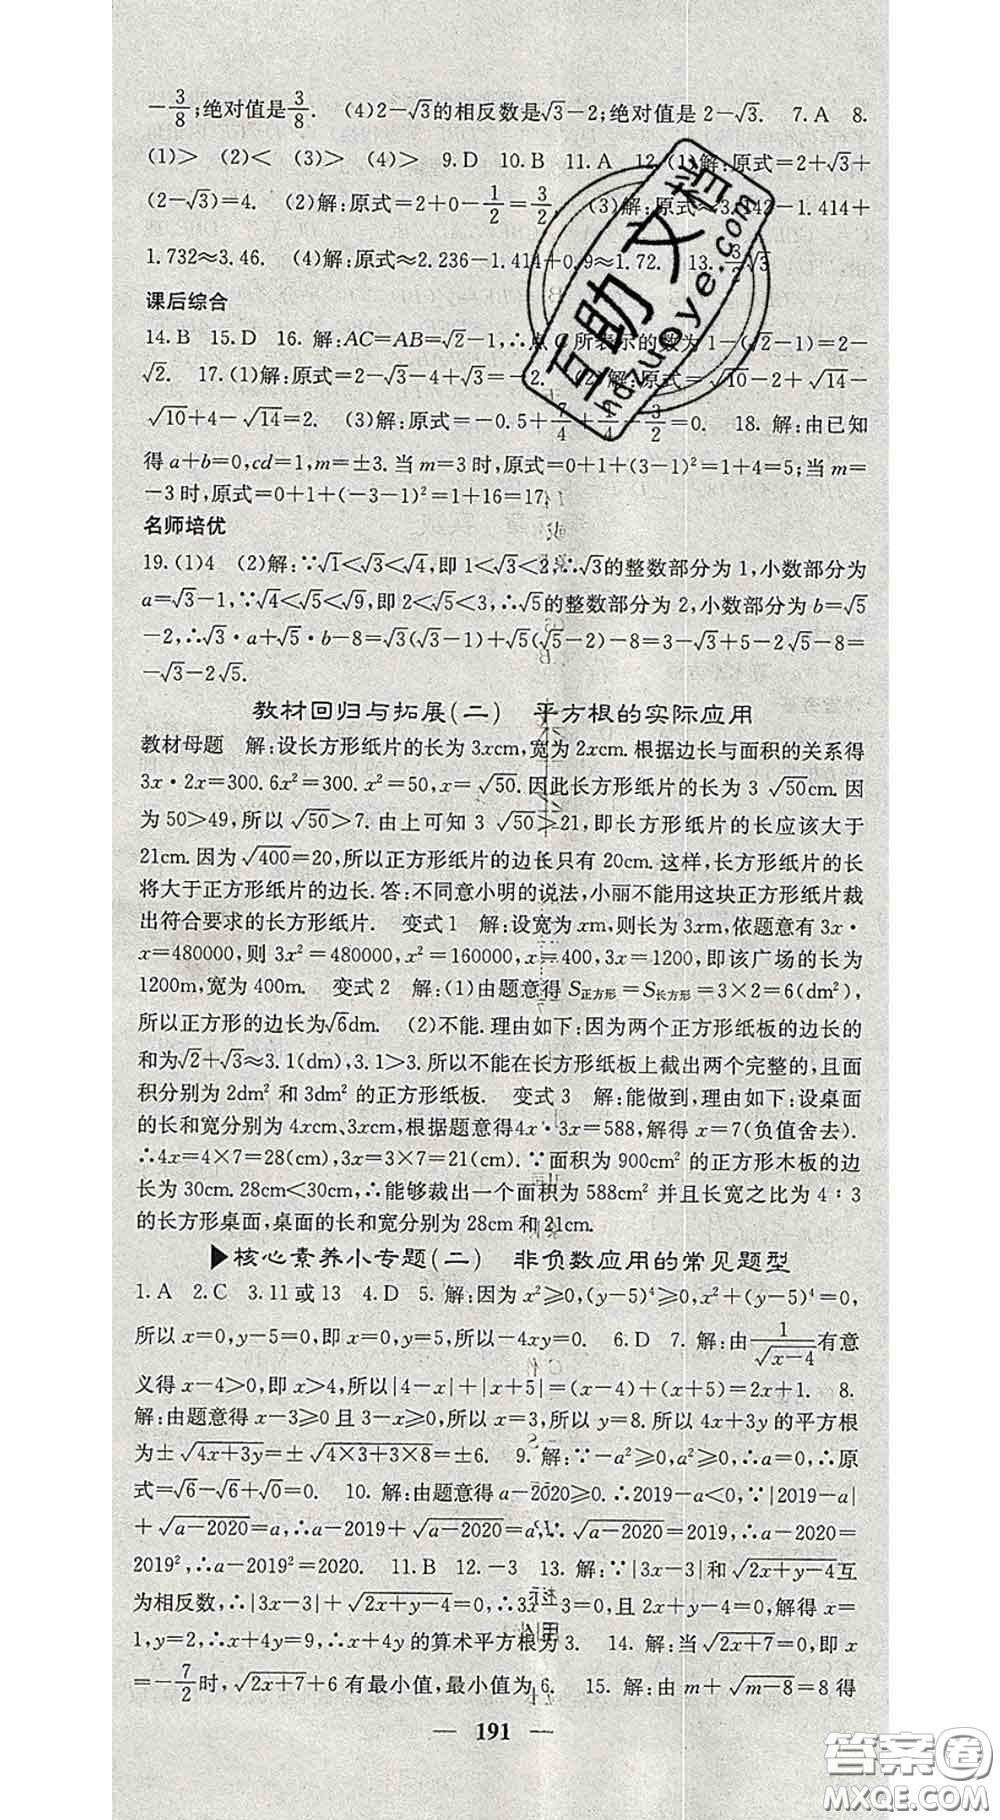 −3/8;绝对值是3/8. (4)2−√3的相反数是√3−2;绝对值是2−√3. 7.A 8.
(1)> (2)< (3)> (4)> 9.D 10.B 11.A 12.(1)解:原式=2+√3+
(2−√3)=4. (2)解:原式=2+0−1/2=3/2. (3)解:原式≈3.142−1.414+
1.732≈3.46. (4)解:原式≈2.236−1.414+0.9≈1.72. 13.3/2√3
课后综合
14.B 15.D 16.解:AC=AB=√2−1,∴点C所表示的数为1−(√2−1)=2−
√2. 17.(1)解:原式=2−√3−4+√3=−2. (2)解:原式=√10−2+√14−
√10+4−√14=2. (3)解:原式=−0.5+7/4+1/4−3/2=0. 18.解:由已知
得a+b=0,cd=1,m=±3.当m=3时,原式=0+1+(3−1)²=1+4=5;当m=
−3时,原式=0+1+(−3−1)²=1+16=17.
名师培优
19.(1)4 (2)解:∵√1<√3<√4,即1<√3<2,∴√3的整数部分为1,小数部分为
a=√3−1,∵√4<√5<√9,即2<√5<3,∴√5的整数部分为2,小数部分为b=√5
−2,∴√3·a+√5·b−8=√3(√3−1)+√5(√5−2)−8=3−√3+5−2√5−8=
−√3−2√5.
教材回归与拓展(二) 平方根的实际应用
教材母题 解:设长方形纸片的长为3xcm,宽为2xcm.根据边长与面积的关系得
3x·2x=300.6x²=300.x²=50,x=√50.因此长方形纸片的长为3√50cm.因
为50>49,所以√50>7.由上可知3√50>21,即长方形纸片的长应该大于
21cm.因为√400=20,所以正方形纸片的边长只有20cm.这样,长方形纸片的长
将大于正方形纸片的边长.答:不同意小明的说法,小丽不能用这块正方形纸片裁
出符合要求的长方形纸片. 变式1 解:设宽为xm,则长为3xm,依题意有3x·
x=480000,则3x²=480000,x²=160000,x=400,3x=1200,即该广场的长为
1200m,宽为400m. 变式2 解:(1)由题意得S正方形=S长方形=3×2=6(dm²),
所以正方形的边长为√6dm. (2)不能.理由如下:因为两个正方形纸板的边长的
和为√2+√3≈3.1(dm),3.1>3.所以不能在长方形纸板上截出两个完整的,且面
积分别为2dm²和3dm²的正方形纸板. 变式3 解:能做到,理由如下:设桌面
的长和宽分别为4xcm、3xcm,根据题意得4x·3x=588,解得x=7(负值舍去).
∴4x=4×7=28(cm),3x=3×7=21(cm).∵面积为900cm²的正方形木板的边
长为30cm.28cm<30cm,∴能够裁出一个面积为588cm²并且长宽之比为4:3
的长方形桌面,桌面的长和宽分别为28cm和21cm.
▶核心素养小专题(二) 非负数应用的常见题型
1.A 2.C 3.11或13 4.D 5.解:因为x²≥0,(y−5)⁴≥0,x²+(y−5)⁴=0,
所以x=0,y−5=0,即x=0,y=5,所以−4xy=0. 6.D 7.解:由1/√(x−4)有意
义得x−4>0,即x>4,所以|4−x|+|x+5|=(x−4)+(x+5)=2x+1. 8.
解:由题意得x−3≥0且3−x≥0,所以x=3,所以y=8.所以4x+3y的平方根
为±√(4x+3y)=±√(4×3+3×8)=±6. 9.解:∵−a²≥0,a²≥0,∴a=0,∴原
式=√6−√6+√0=0. 10.解:由题意得a−2020≥0.∴2019−a<0,∵|2019−a|
+√(a−2020)=a,∴a−2019+√(a−2020)=a,∴√(a−2020)=2019,∴a−2020=
2019²,∴a−2019²=2020. 11.B 12.−3 13.解:∵|3x−3|和√(2x+y−4)互
为相反数,∴|3x−3|+√(2x+y−4)=0,∴3x−3=0,且2x+y−4=0,解得x=
1,y=2,∴x+4y=9,∴x+4y的算术平方根为3. 14.解:当√(2x+7)=0,即x
=−7/2时,√(2x+7)+6有最小值,最小值为6. 15.解:由m+√(m−8)=8得
— 191 —
互助文档
hdzuoye.com
答案圈
MXQE.COM